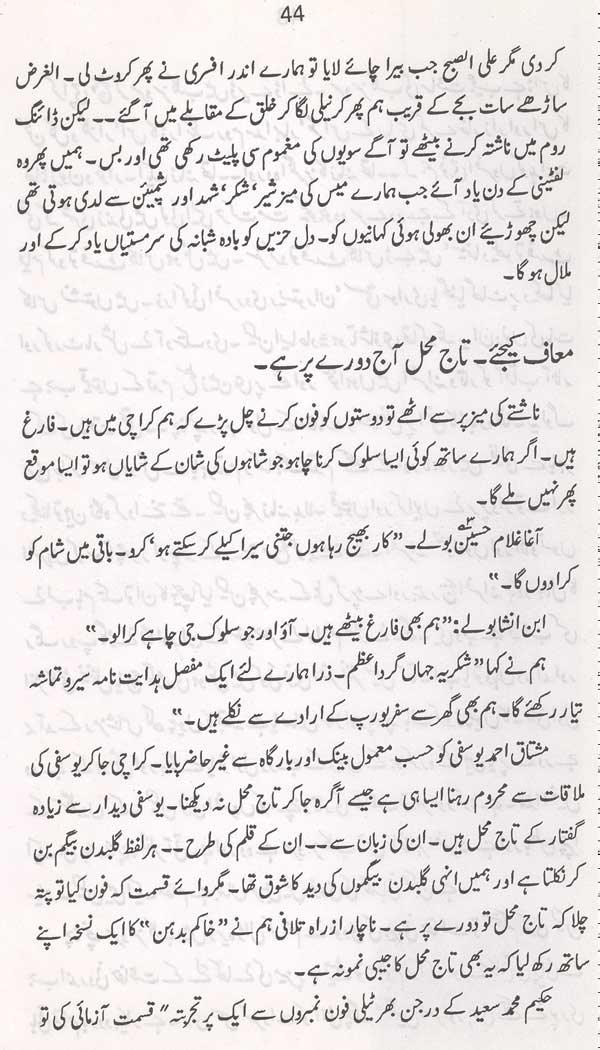 44
کر دی مگر علی الصبح جب بیرا چائے لایا تو ہمارے اندر افسری نے پھر کروٹ لی۔ الغرض
ساڑھے سات بجے کے قریب ہم پھر کرنیلی لگا کر خلق کے مقابلے میں آ گئے۔۔ لیکن ڈائننگ
روم میں ناشتہ کرنے بیٹھے تو آگے سویوں کی مغموم سی پلیٹ رکھی تھی اور بس۔ ہمیں پھر وہ
لفٹینی کے دن یاد آئے جب ہمارے میس کی میز شیر' شکر' شہد اور شمپئین سے لدی ہوتی تھی
لیکن چھوڑیئے ان بھولی ہوئی کہانیوں کو۔ دل حزیں کو بادہ شبانہ کی سرمستیاں یاد کر کے اور
ملال ہو گا۔
معاف کیجئے۔ تاج محل آج دورے پر ہے۔
ناشتے کی میز پر سے اٹھے تو دوستوں کو فون کرنے چل پڑے کہ ہم کراچی میں ہیں۔ فارغ
ہیں۔ اگر ہمارے ساتھ کوئی ایسا سلوک کرنا چاہو جو شاہوں کی شان کے شایاں ہو تو ایسا موقع
پھر نہیں ملے گا۔
آغا غلام حسینؒ بولے۔ "کار بھیج رہا ہوں جتنی سیر اکیلے کر سکتے ہو' کرو۔ باقی میں شام کو
کرا دوں گا۔"
ابن انشا بولے: "ہم بھی فارغ بیٹھے ہیں۔ آؤ اور جو سلوک جی چاہے کرا لو۔"
ہم نے کہا "شکریہ جہاں گرد اعظم۔ ذرا ہمارے لئے ایک مفصل ہدایت نامہ سیر و تماشہ
تیار رکھئے گا۔ ہم بھی گھر سے سفر یورپ کے ارادے سے نکلے ہیں۔"
مشتاق احمد یوسفی کو حسب معمول بینک اور بارگاہ سے غیر حاضر پایا۔ کراچی جا کر یوسفی کی
ملاقات سے محروم رہنا ایسا ہی ہے جیسے آگرہ جا کر تاج محل نہ دیکھنا۔ یوسفی دیدار سے زیادہ
گفتار کے تاج محل ہیں۔ ان کی زبان سے۔۔ ان کے قلم کی طرح۔۔ ہر لفظ گلبدن بیگم بن
کر نکلتا ہے اور ہمیں انہی گلبدن بیگموں کی دید کا شوق تھا۔ مگر وائے قسمت کہ فون کیا تو پتہ
چلا کہ تاج محل تو دورے پر ہے۔ ناچار از راہ تلافی ہم نے "خاکم بدہن" کا ایک نسخہ اپنے
ساتھ رکھ لیا کہ یہ بھی تاج محل کا جیبی نمونہ ہے۔
حکیم محمد سعید کے درجن بھر ٹیلی فون نمبروں سے ایک پر تجربتہ" قسمت آزمائی کی تو